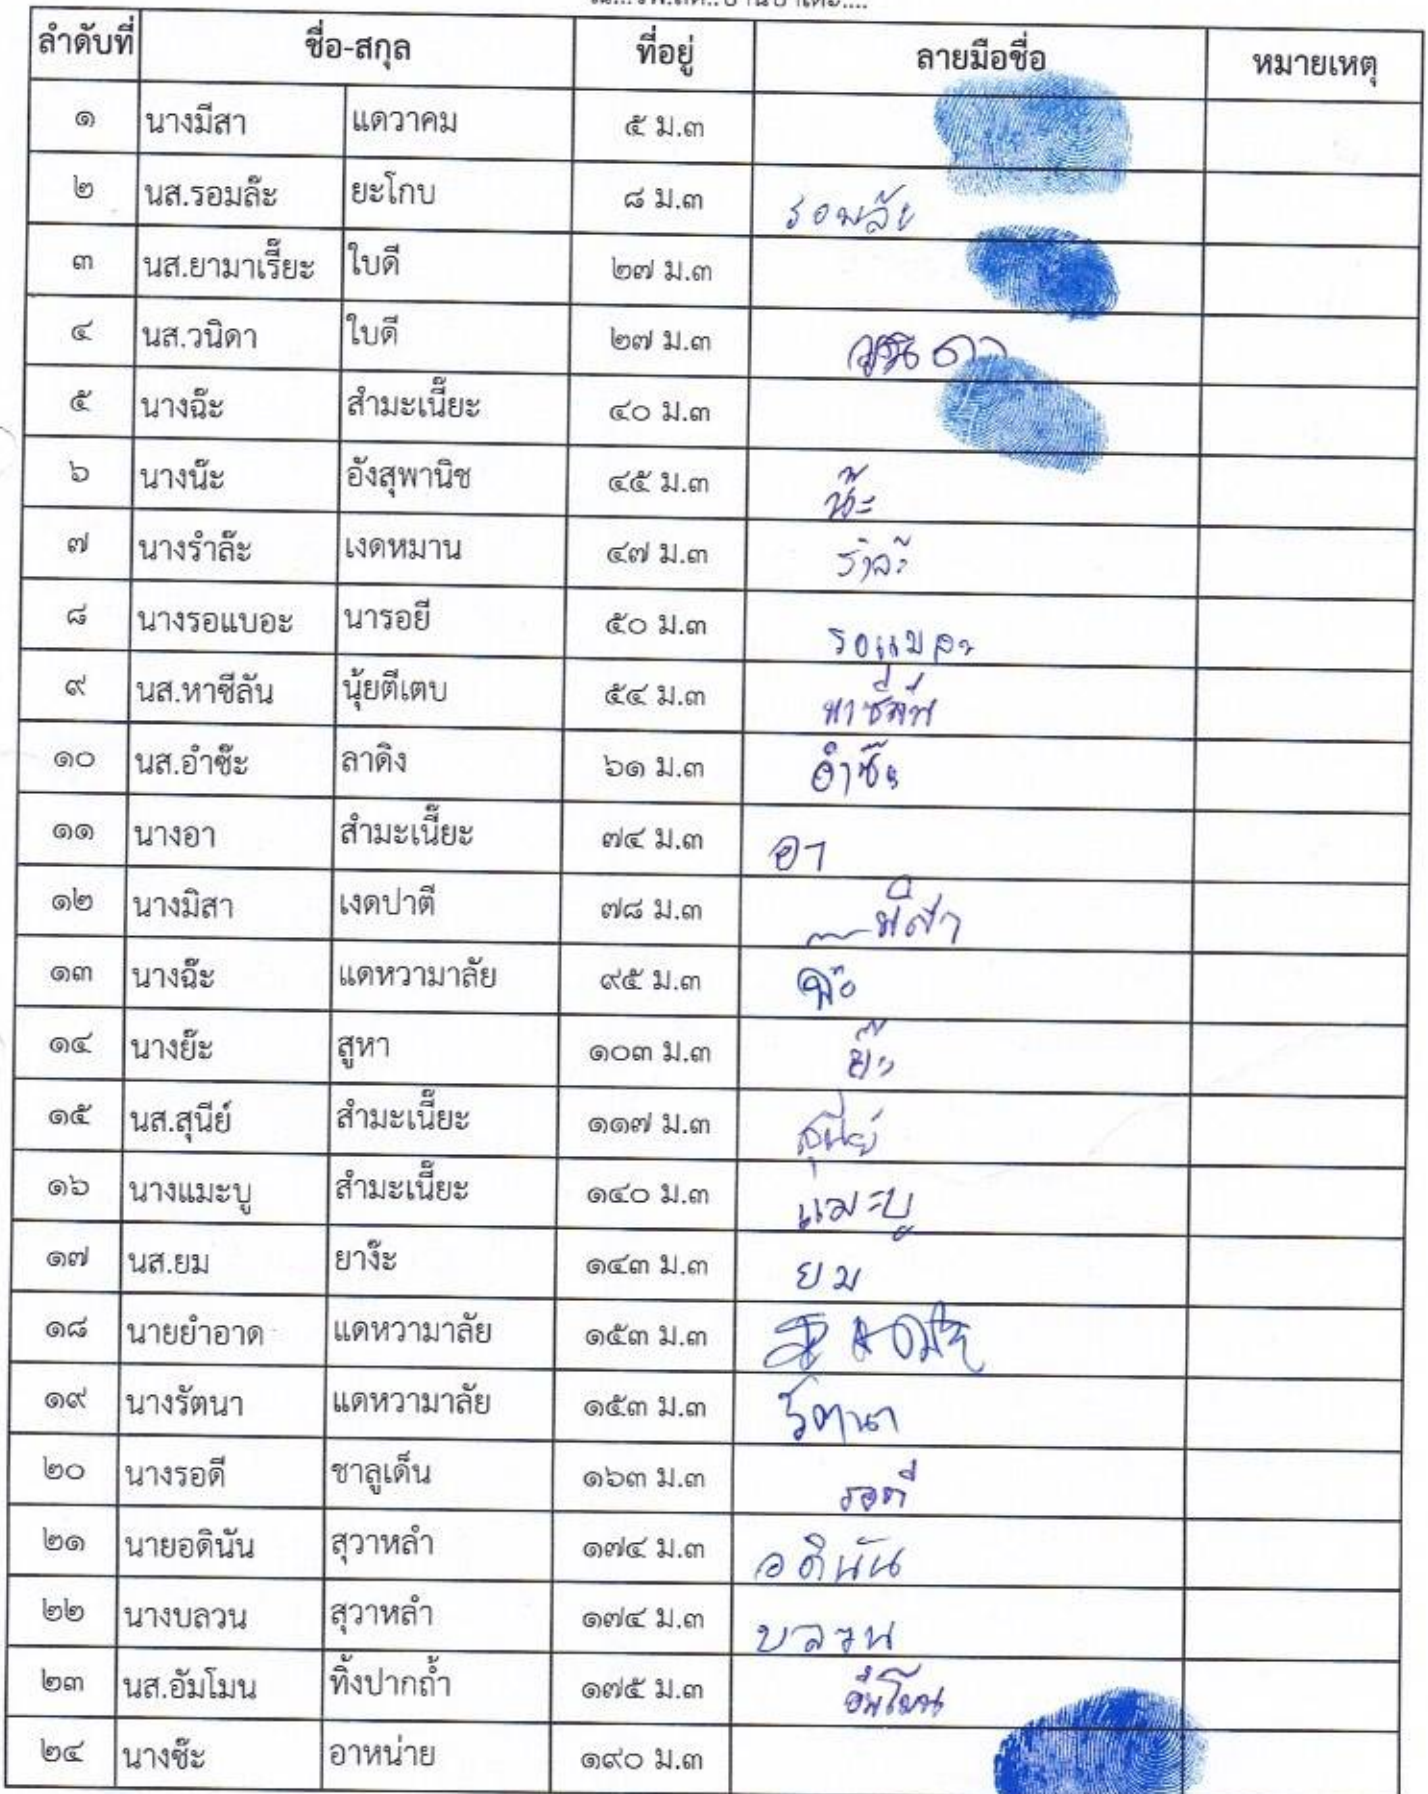 ลำดับที่ ชื่อ-สกุล ที่อยู่ ลายมือชื่อ หมายเหตุ
๑ นางมีสา แดวาคม ๕ ม.๓
๒ นส.รอมล๊ะ ยะโกบ ๘ ม.๓
๓ นส.ยามาเรี๊ยะ ใบดี ๒๗ ม.๓
๔ นส.วนิดา ใบดี ๒๗ ม.๓ วนิดา
๕ นางฉ๊ะ สำมะเนี๊ยะ ๔๐ ม.๓
๖ นางน๊ะ อังสุพานิช ๔๕ ม.๓ น๊ะ
๗ นางรำล๊ะ เงดหมาน ๔๗ ม.๓ รำล๊ะ
๘ นางรอแบอะ นารอยี ๕๐ ม.๓
๙ นส.หาซีลัน นุ้ยตีเตบ ๕๔ ม.๓ หาซีลัน
๑๐ นส.อำซ๊ะ ลาดิง ๖๑ ม.๓ อำซ๊ะ
๑๑ นางอา สำมะเนี๊ยะ ๗๔ ม.๓ อา
๑๒ นางมิสา เงดปาตี ๗๘ ม.๓ มิสา
๑๓ นางฉ๊ะ แดหวามาลัย ๙๕ ม.๓ ฉ๊ะ
๑๔ นางย๊ะ สูหา ๑๐๓ ม.๓ ย๊ะ
๑๕ นส.สุนีย์ สำมะเนี๊ยะ ๑๑๗ ม.๓ สุนีย์
๑๖ นางแมะบู สำมะเนี๊ยะ ๑๔๐ ม.๓ แมะบู
๑๗ นส.ยม ยาง๊ะ ๑๔๓ ม.๓ ยม
๑๘ นายยำอาด แดหวามาลัย ๑๕๓ ม.๓
๑๙ นางรัตนา แดหวามาลัย ๑๕๓ ม.๓ รัตนา
๒๐ นางรอดี ชาลูเด็น ๑๖๓ ม.๓ รอดี
๒๑ นายอดินัน สุวาหลำ ๑๗๔ ม.๓ อดินัน
๒๒ นางบลวน สุวาหลำ ๑๗๔ ม.๓ บลวน
๒๓ นส.อัมโมน ทิ้งปากถ้ำ ๑๗๕ ม.๓ อัมโมน
๒๔ นางซ๊ะ อาหน่าย ๑๙๐ ม.๓